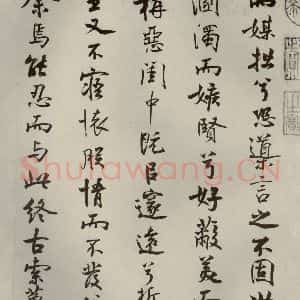 而媒拙兮恐導言之不固世
溷濁而嫉賢兮好蔽美而
稱惡閨中既以邃遠兮哲
王又不寤懷朕情而不發
余焉能忍而与此終古索藑
Shufawang.CN